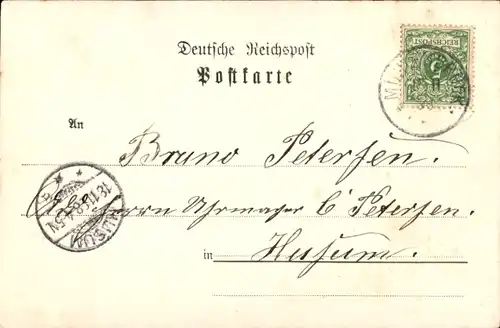 Deutsche Reichspost
Postkarte
REICHSPOST
5
An
Bruno Petersen.
Herrn Uhrmacher C Petersen.
in Husum.
HUSUM